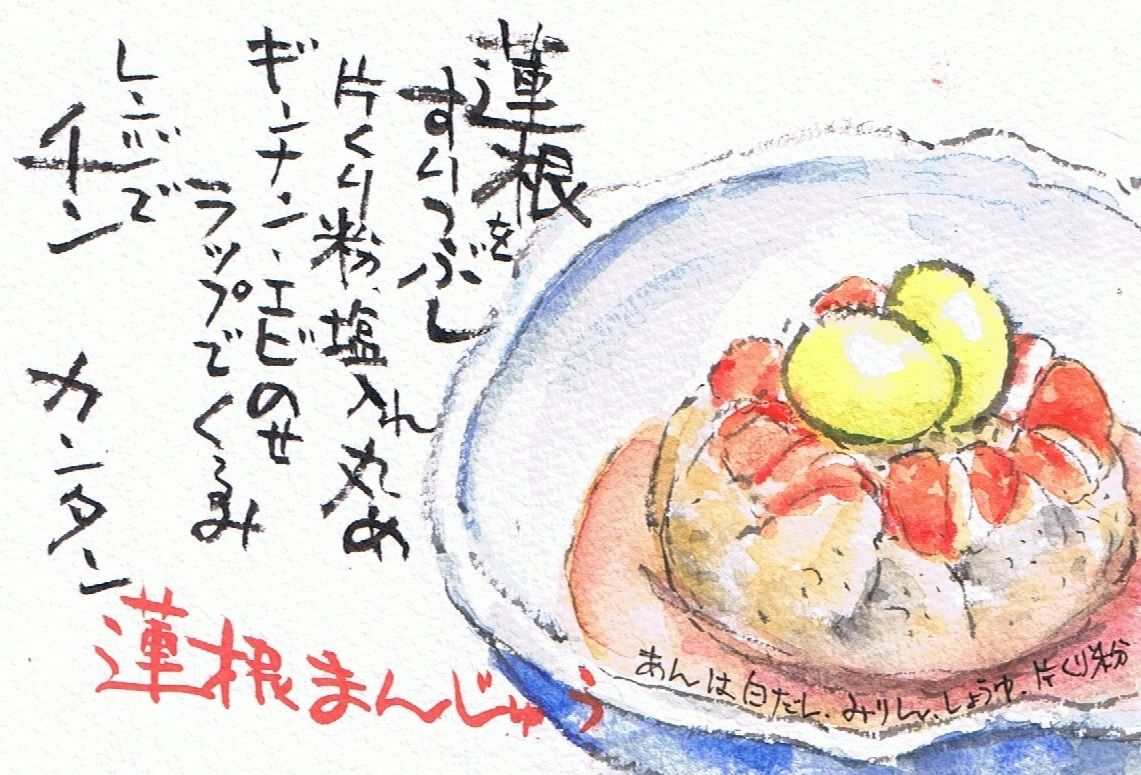 蓮根を
すりつぶし
片くり粉、塩入れ丸め
ギンナン、エビのせ
ラップでくるみ
レンジで
チン　カンタン
蓮根まんじゅう
あんは白だし、みりん、しょうゆ、片くり粉